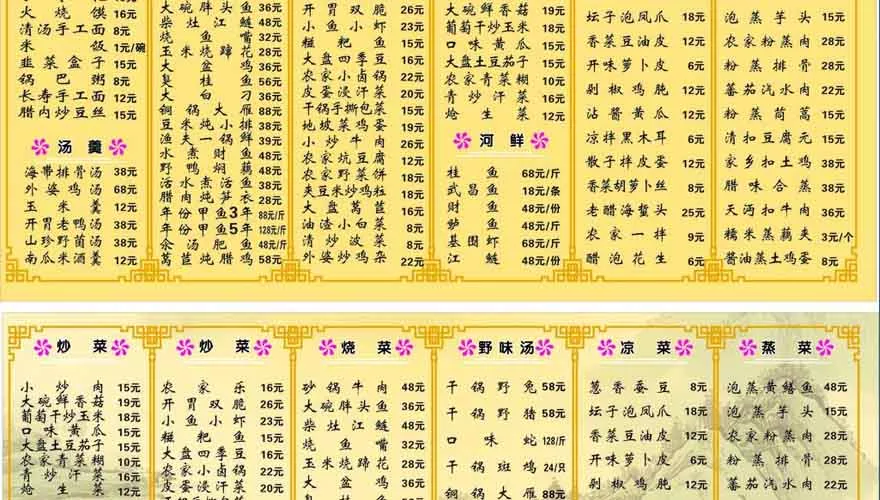 火烧馍 16元
清汤手工面 8元
米饭 1元/碗
韭菜盒子 8元
锅巴粥 8元
长寿手工面 12元
腊肉炒豆丝 15元
汤羹
海带排骨汤 38元
外婆鸡汤 68元
玉米羹 12元
开胃老鸭汤 38元
山珍野菌汤 38元
南瓜米酒羹 12元
大碗胖头鱼 36元
柴灶江鲢 48元
烧鱼嘴 32元
玉米烧蹄花 28元
大盆鸡 36元
臭桂鱼 56元
大白刁 36元
铜锅大雁 88元
豆米炖小排 38元
渔夫一锅鲜 39元
水煮财鱼 48元
野鸭焖藕 48元
活水煮活鱼 38元
腊肉炖笋衣 28元
年份甲鱼3年 88元/斤
年份甲鱼5年 128元/斤
汆汤肥鱼 48元/斤
莴苣炖腊鸡 58元
开胃双脆 26元
小鱼小虾 23元
糍粑鱼 15元
大盘四季豆 16元
农家小卤锅 22元
皮蛋浸汗菜 18元
干锅手撕包菜 15元
地坡菜鸡蛋 19元
小炒牛肉 26元
农家炕豆腐 12元
农家野菜饼 18元
夹豆米炒鸡粒 18元
大盘莴苣 16元
油渣小白菜 18元
清炒波菜 8元
外婆炒鸡杂 22元
大碗鲜香菇 19元
葡萄干炒玉米 18元
口味黄瓜 15元
大盘土豆茄子 15元
农家青菜糊 10元
青炒汗菜 16元
炝生菜 12元
河鲜
桂鱼 68元/斤
武昌鱼 18元/条
财鱼 48元/份
鮰鱼 48元/斤
基围虾 68元/斤
江鲢 48元/份
坛子泡凤爪 18元
香菜豆油皮 12元
开味萝卜皮 6元
剁椒鸡肫 12元
沾酱黄瓜 12元
凉拌黑木耳 6元
馓子拌皮蛋 12元
香菜胡萝卜丝 8元
老醋海蜇头 25元
农家一拌 9元
醋泡花生 6元
泡蒸芋头 15元
农家粉蒸肉 28元
粉蒸排骨 28元
蕃茄汽水肉 22元
粉蒸茼蒿 15元
清扣豆腐元 15元
家乡扣土鸡 38元
腊味合蒸 38元
天沔扣牛肉 36元
糯米蒸藕夹 3元/个
酱油蒸土鸡蛋 8元
炒菜
小炒肉 15元
大碗鲜香菇 19元
葡萄干炒玉米 18元
口味黄瓜 15元
大盘土豆茄子 15元
农家青菜糊 10元
青炒汗菜 15元
炝生菜 12元
炒菜
农家乐 16元
开胃双脆 26元
小鱼小虾 23元
糍粑鱼 15元
大盘四季豆 16元
农家小卤锅 22元
皮蛋浸汗菜 18元
烧菜
砂锅牛肉 48元
大碗胖头鱼 36元
柴灶江鲢 48元
烧鱼嘴 32元
玉米烧蹄花 28元
大盆鸡 36元
臭桂鱼 56元
野味汤
干锅野兔 58元
干锅野猪 58元
口味蛇 128/斤
干锅斑鸡 24/只
铜锅大雁 88元
凉菜
葱香蚕豆 8元
坛子泡凤爪 18元
香菜豆油皮 12元
开味萝卜皮 6元
剁椒鸡肫 12元
蒸菜
泡蒸黄鳝鱼 48元
泡蒸芋头 15元
农家粉蒸肉 28元
粉蒸排骨 28元
蕃茄汽水肉 22元